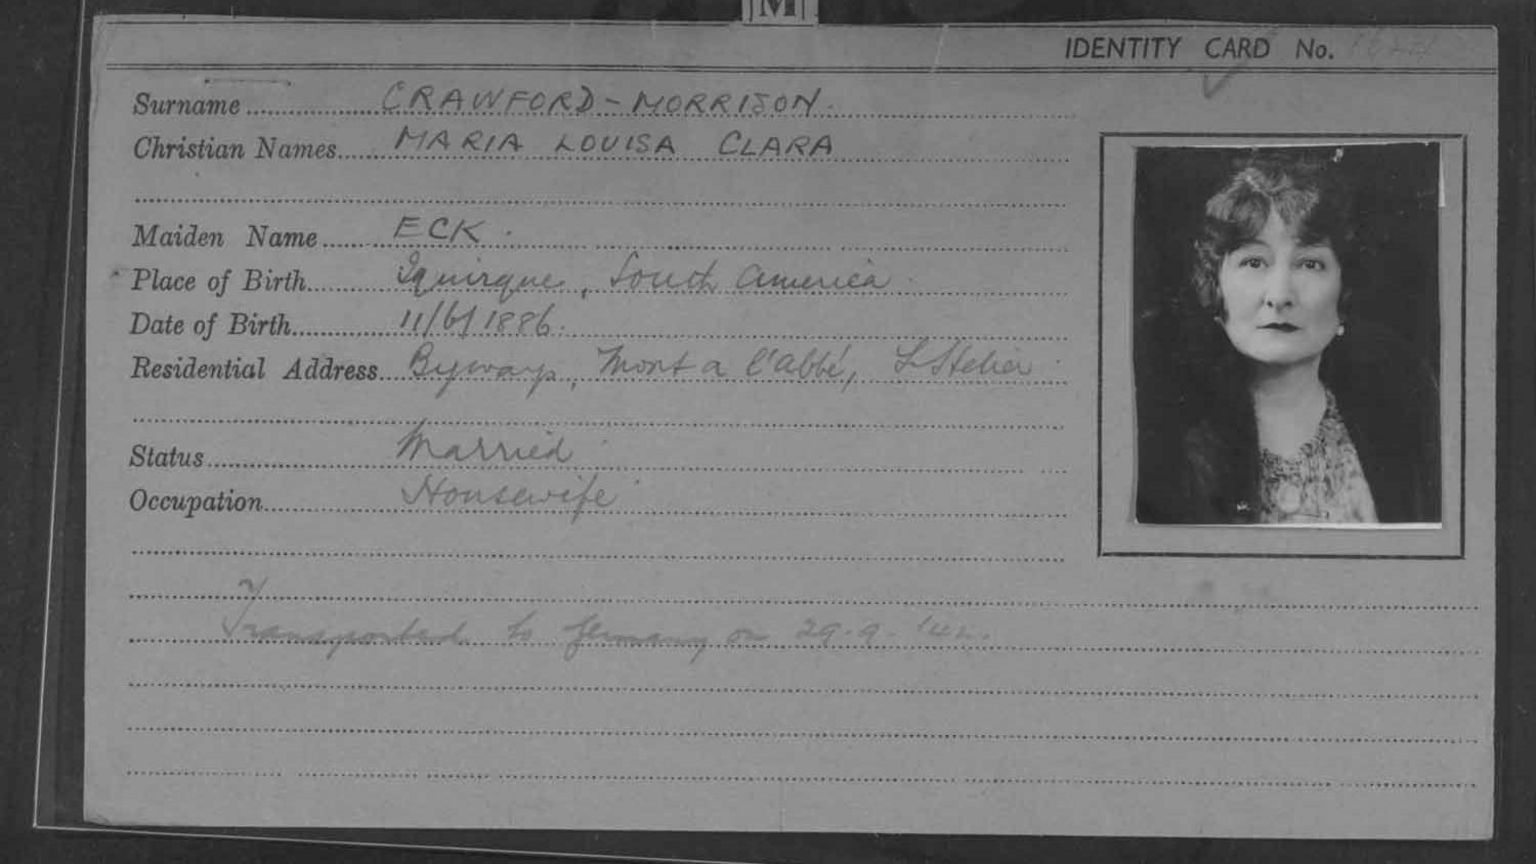 M
IDENTITY CARD No.
Surname CRAWFORD-MORRISON.
Christian Names MARIA LOUISA CLARA
Maiden Name ECK.
Place of Birth Iquirque, South America
Date of Birth 11/6/1886.
Residential Address Byways, Mont a l'abbé, St Helier
Status Married
Occupation Housewife
Transported to Germany on 29.9.'42.